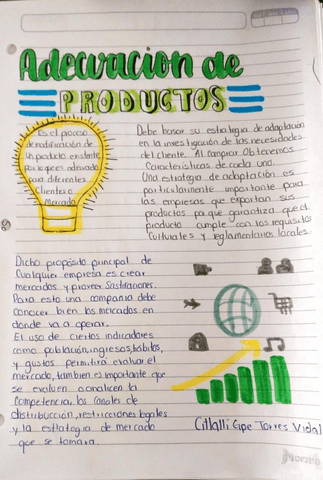 Adecuacion de
PRODUCTOS
Es el proceso
de modificación de
un producto existente
para
diferentes
Clientes o
Mercado
Debe basar su estrategia de adaptación
en la investigación de las necesidades
del cliente. Al comprar Obtenemos
Características de cada uno.
Una estrategia de adaptación es
particularmente importante para
las empresas que exportan sus
productos porque garantiza que el
producto cumple con los requisitos
Culturales y reglamentarios locales.
Dicho propósito principal de
Cualquier empresa es crear
mercados y proveer Sastifaciones.
Para esto una compañia debe
conocer bien los mercados en
donde va a operar.
El uso de ciertos indicadores
como población, ingresos, hábitos,
y gustos permitira evaluar el
mercado, tambien es importante que
se evaluen analicen la
Competencia, los Canales de
distribucción, restricciones legales
y la estrategia de mercado
que se tomara.
Citlalli Torres Vidal